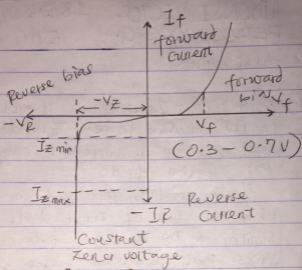 If
forward
current
Reverse bias
-Vz
forward
bias Vf
-VR
Vf
Iz min
(0.3 - 0.7V)
Iz max
Reverse
current
- IR
Constant
zener voltage